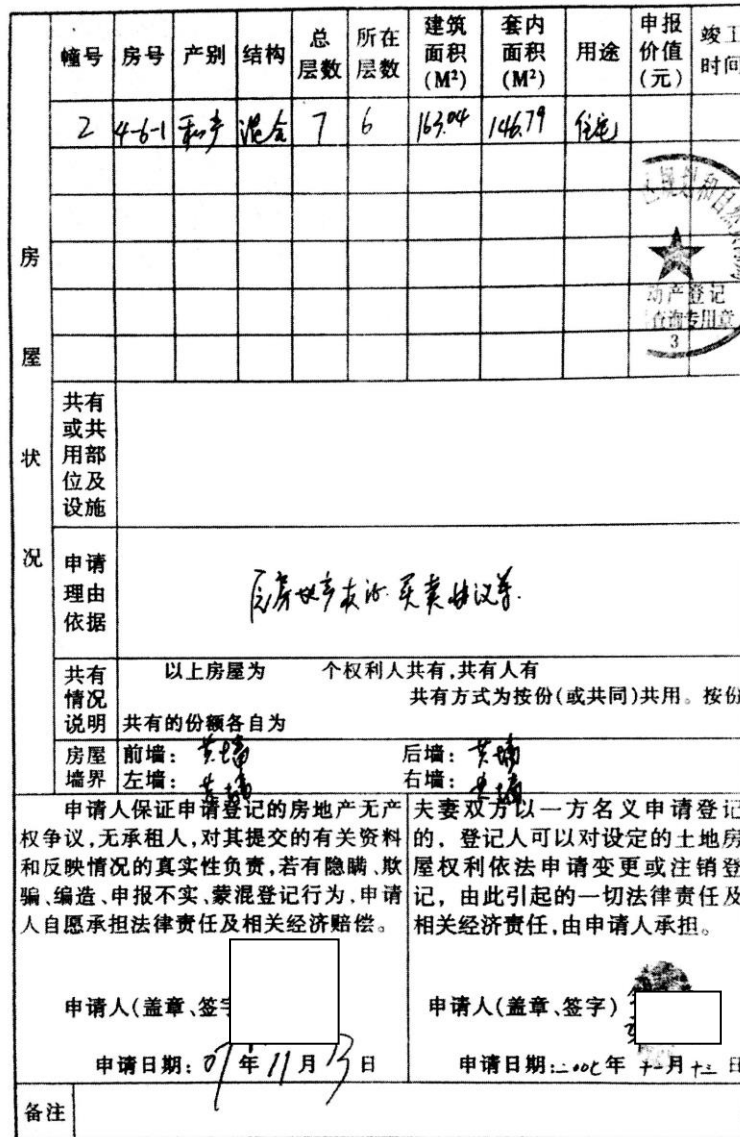 幢号 房号 产别 结构 总层数 所在层数 建筑面积(M²) 套内面积(M²) 用途 申报价值(元) 竣工时间
2 4-6-1 私产 混合 7 6 163.04 146.79 住宅
房屋状况
动产登记
查询专用章
3
共有或共用部位及设施
申请理由依据 买卖协议等.
共有情况说明 以上房屋为 个权利人共有,共有人有
共有方式为按份(或共同)共用。按份
共有的份额各自为
房屋墙界 前墙: 共墙 后墙: 共墙
左墙: 共墙 右墙: 共墙
申请人保证申请登记的房地产无产
权争议,无承租人,对其提交的有关资料
和反映情况的真实性负责,若有隐瞒、欺
骗、编造、申报不实、蒙混登记行为,申请
人自愿承担法律责任及相关经济赔偿。
申请人(盖章、签字
申请日期: 07 年 11 月 13 日
夫妻双方以一方名义申请登记
的,登记人可以对设定的土地房
屋权利依法申请变更或注销登
记,由此引起的一切法律责任及
相关经济责任,由申请人承担。
申请人(盖章、签字)
申请日期: 年 十一月 十三 日
备注